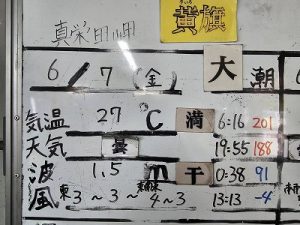 真栄田岬 黄旗
6/7(金) 大潮
気温 27℃ 満 6:16 201
天気 曇 19:55 188
波 1.5m 干 0:38 91
風 東3~3~東南東4~3 13:13 -4